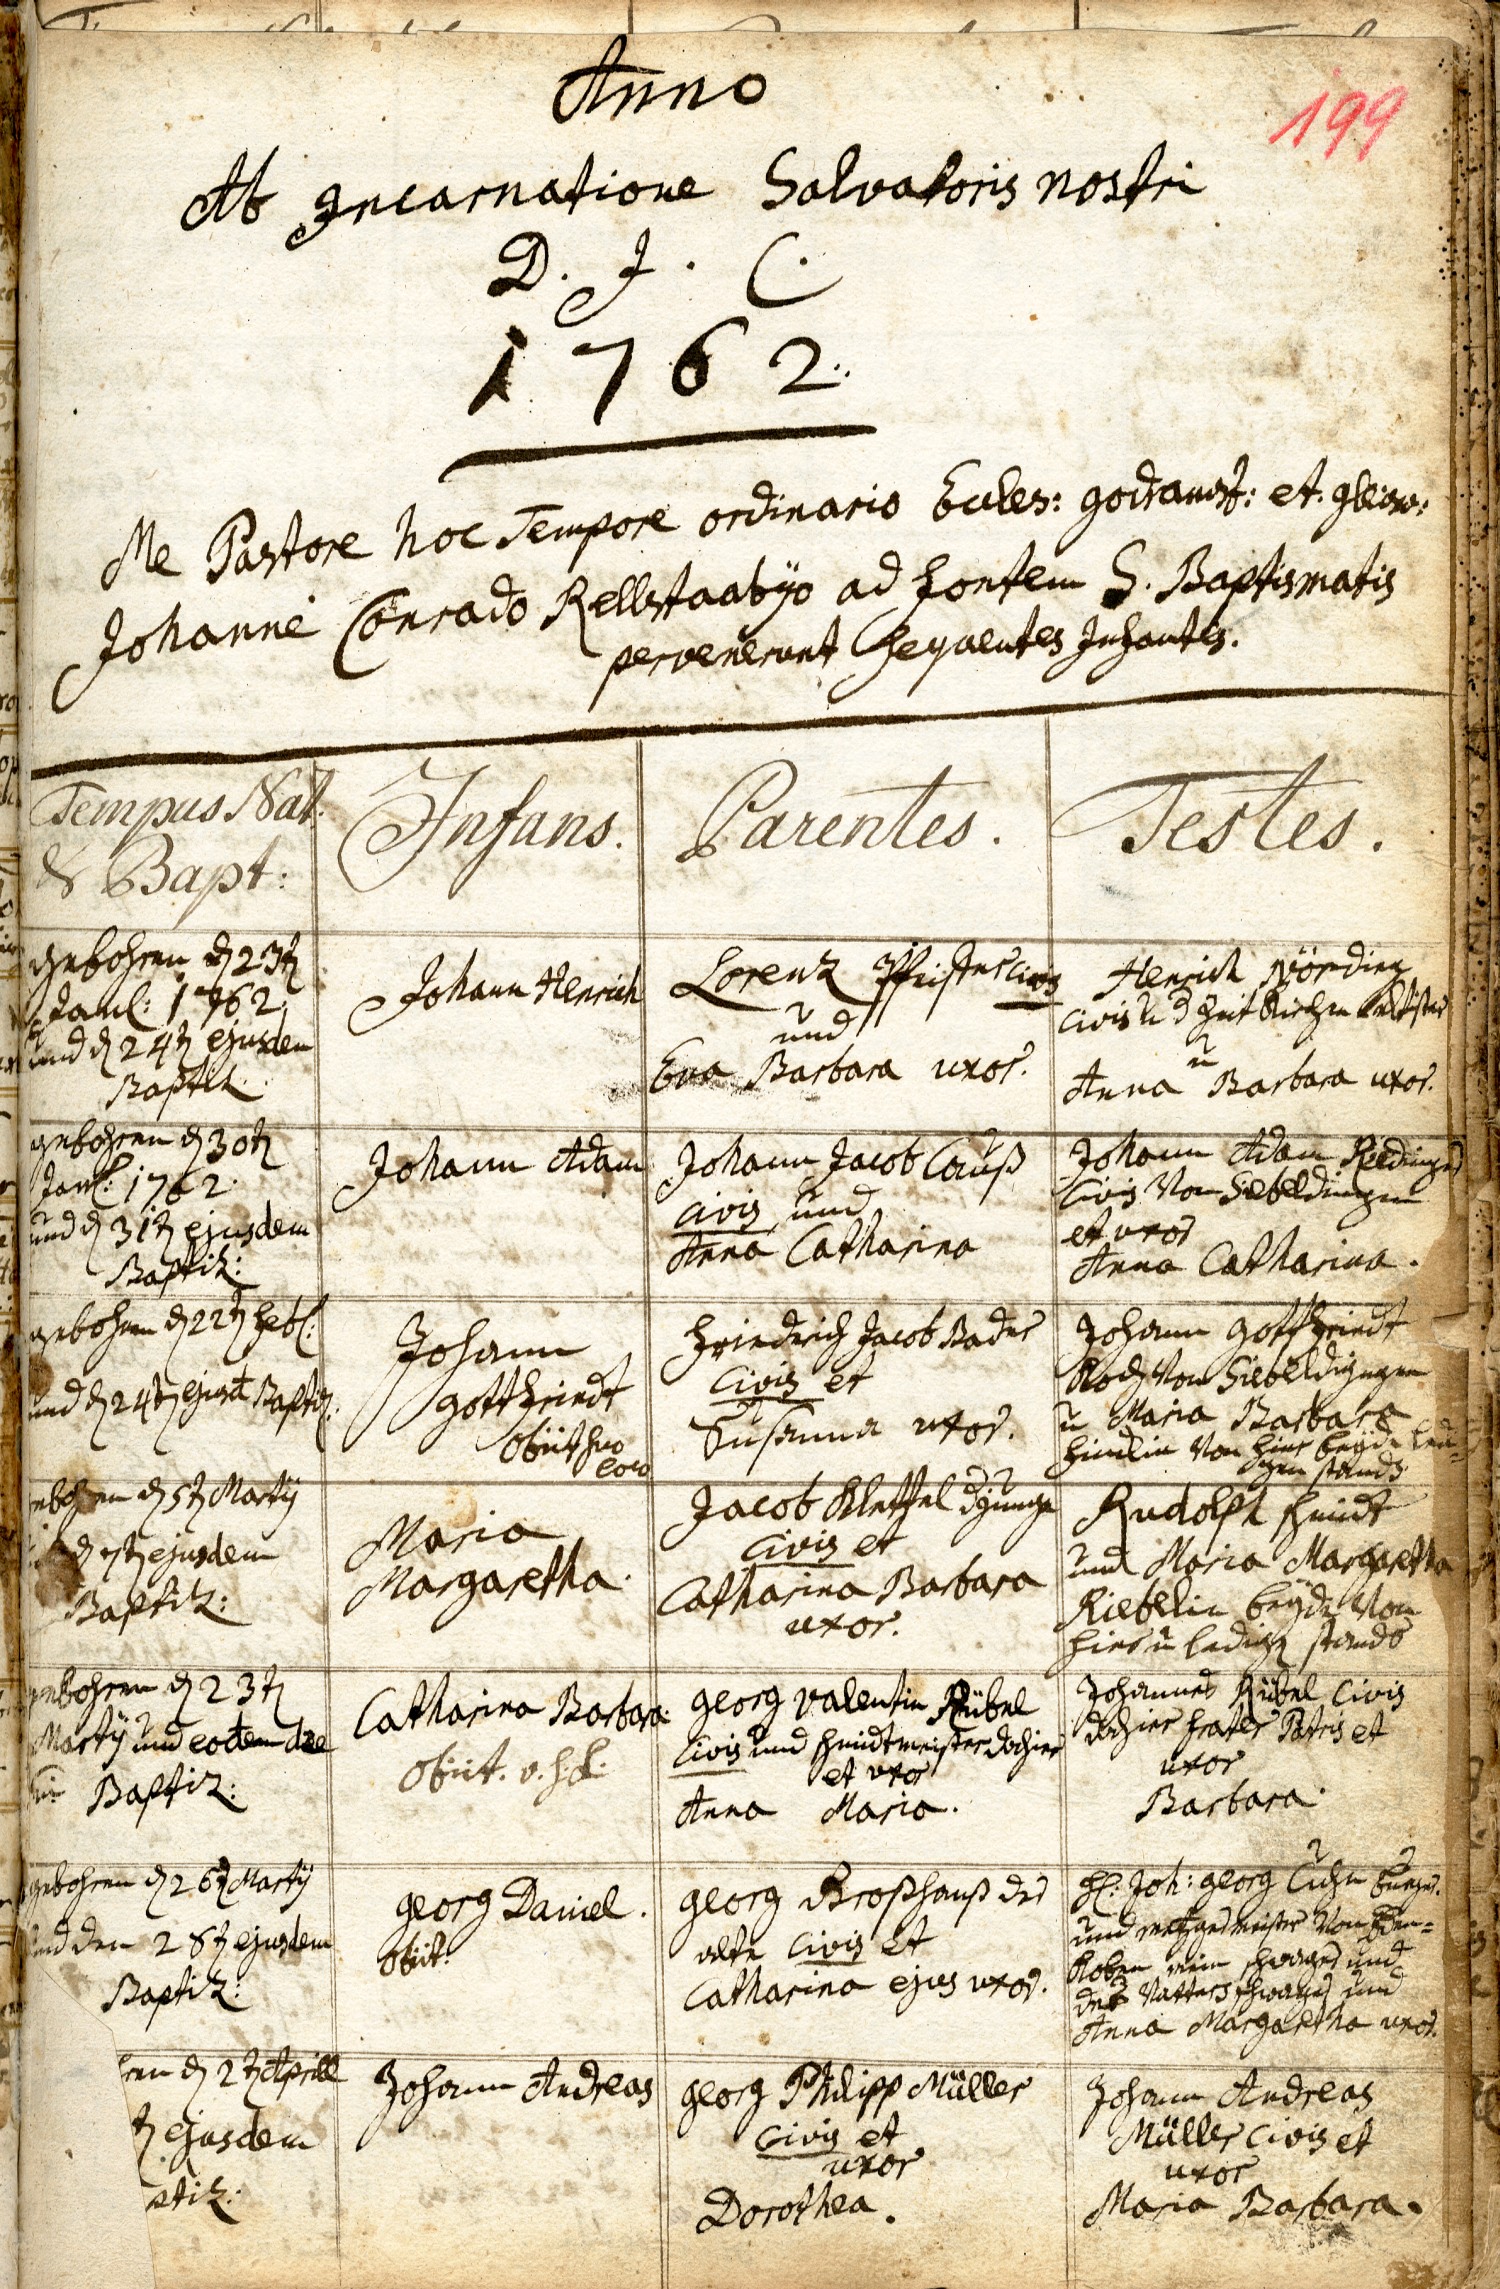 Anno
199
Ab Incarnatione Salvatoris nostri
D. J. C.
1762.
Me Pastore hoc Tempore ordinario Eccles: godramst: et. gleisw:
Johanne Conrado Rellstaabÿo ad fontem S. Baptismatis
pervenerunt sequentes Infantes.
Tempus Nat.
& Bapt:
Infans.
Parentes.
Testes.
gebohren d 23t
Janl: 1762.
und d 24t ejusdem
Baptiz.
Johann Henrich
Lorenz Pfister civis
und
Eva Barbara uxor.
Henrich Nörding
civis u d Zeit Kirchen Eltster
u
Anna Barbara uxor.
gebohren d 30t
Janl: 1762.
und d 31t ejusdem
Baptiz:
Johann Adam
Johann Jacob Cauß
civis und
Anna Catharina
Johann Adam Riedinger
Civis Von Siebeldingen
et uxor
Anna Catharina.
gebohren d 22t febl:
und d 24t ejusd Baptiz:
Johann
Gottfriedt
obiit suo
loco
Friedrich Jacob Bader
Civis et
Susanna uxor.
Johann Gottfriedt
Koch Von Siebeldingen
u Maria Barbara
Von hier beÿde led-
igen stands
gebohren d 5t Martÿ
d 7t ejusdem
Baptiz:
Maria
Margaretha.
Jacob Kleffel d junge
Civis et
Catharina Barbara
uxor.
Rudolph schmidt
und Maria Margaretha
Riebelin beÿde Von
hier u ledigen stands
gebohren d 23t
Martÿ und eodem die
Baptiz:
Catharina Barbara.
obiit.
Georg Valentin Rübel
Civis und schmidtmeister dahier
et uxor
Anna Maria.
Johannes Rübel Civis
dahier frater Patris et
uxor
Barbara.
gebohren d 26t Martÿ
und den 28t ejusdem
Baptiz:
Georg Daniel.
obiit.
Georg Großhanß der
alte Civis et
Catharina ejus uxor.
H: Joh: Georg burger.
und metzgermeister Von Eden-
koben mein schwager und
des Vatters schwager und
Anna Margaretha uxor.
ren d 2t Aprill
t ejusdem
ptiz:
Johann Andreas
Georg Philipp Müller
Civis et
uxor
Dorothea.
Johann Andreas
Müller Civis et
uxor
Maria Barbara.